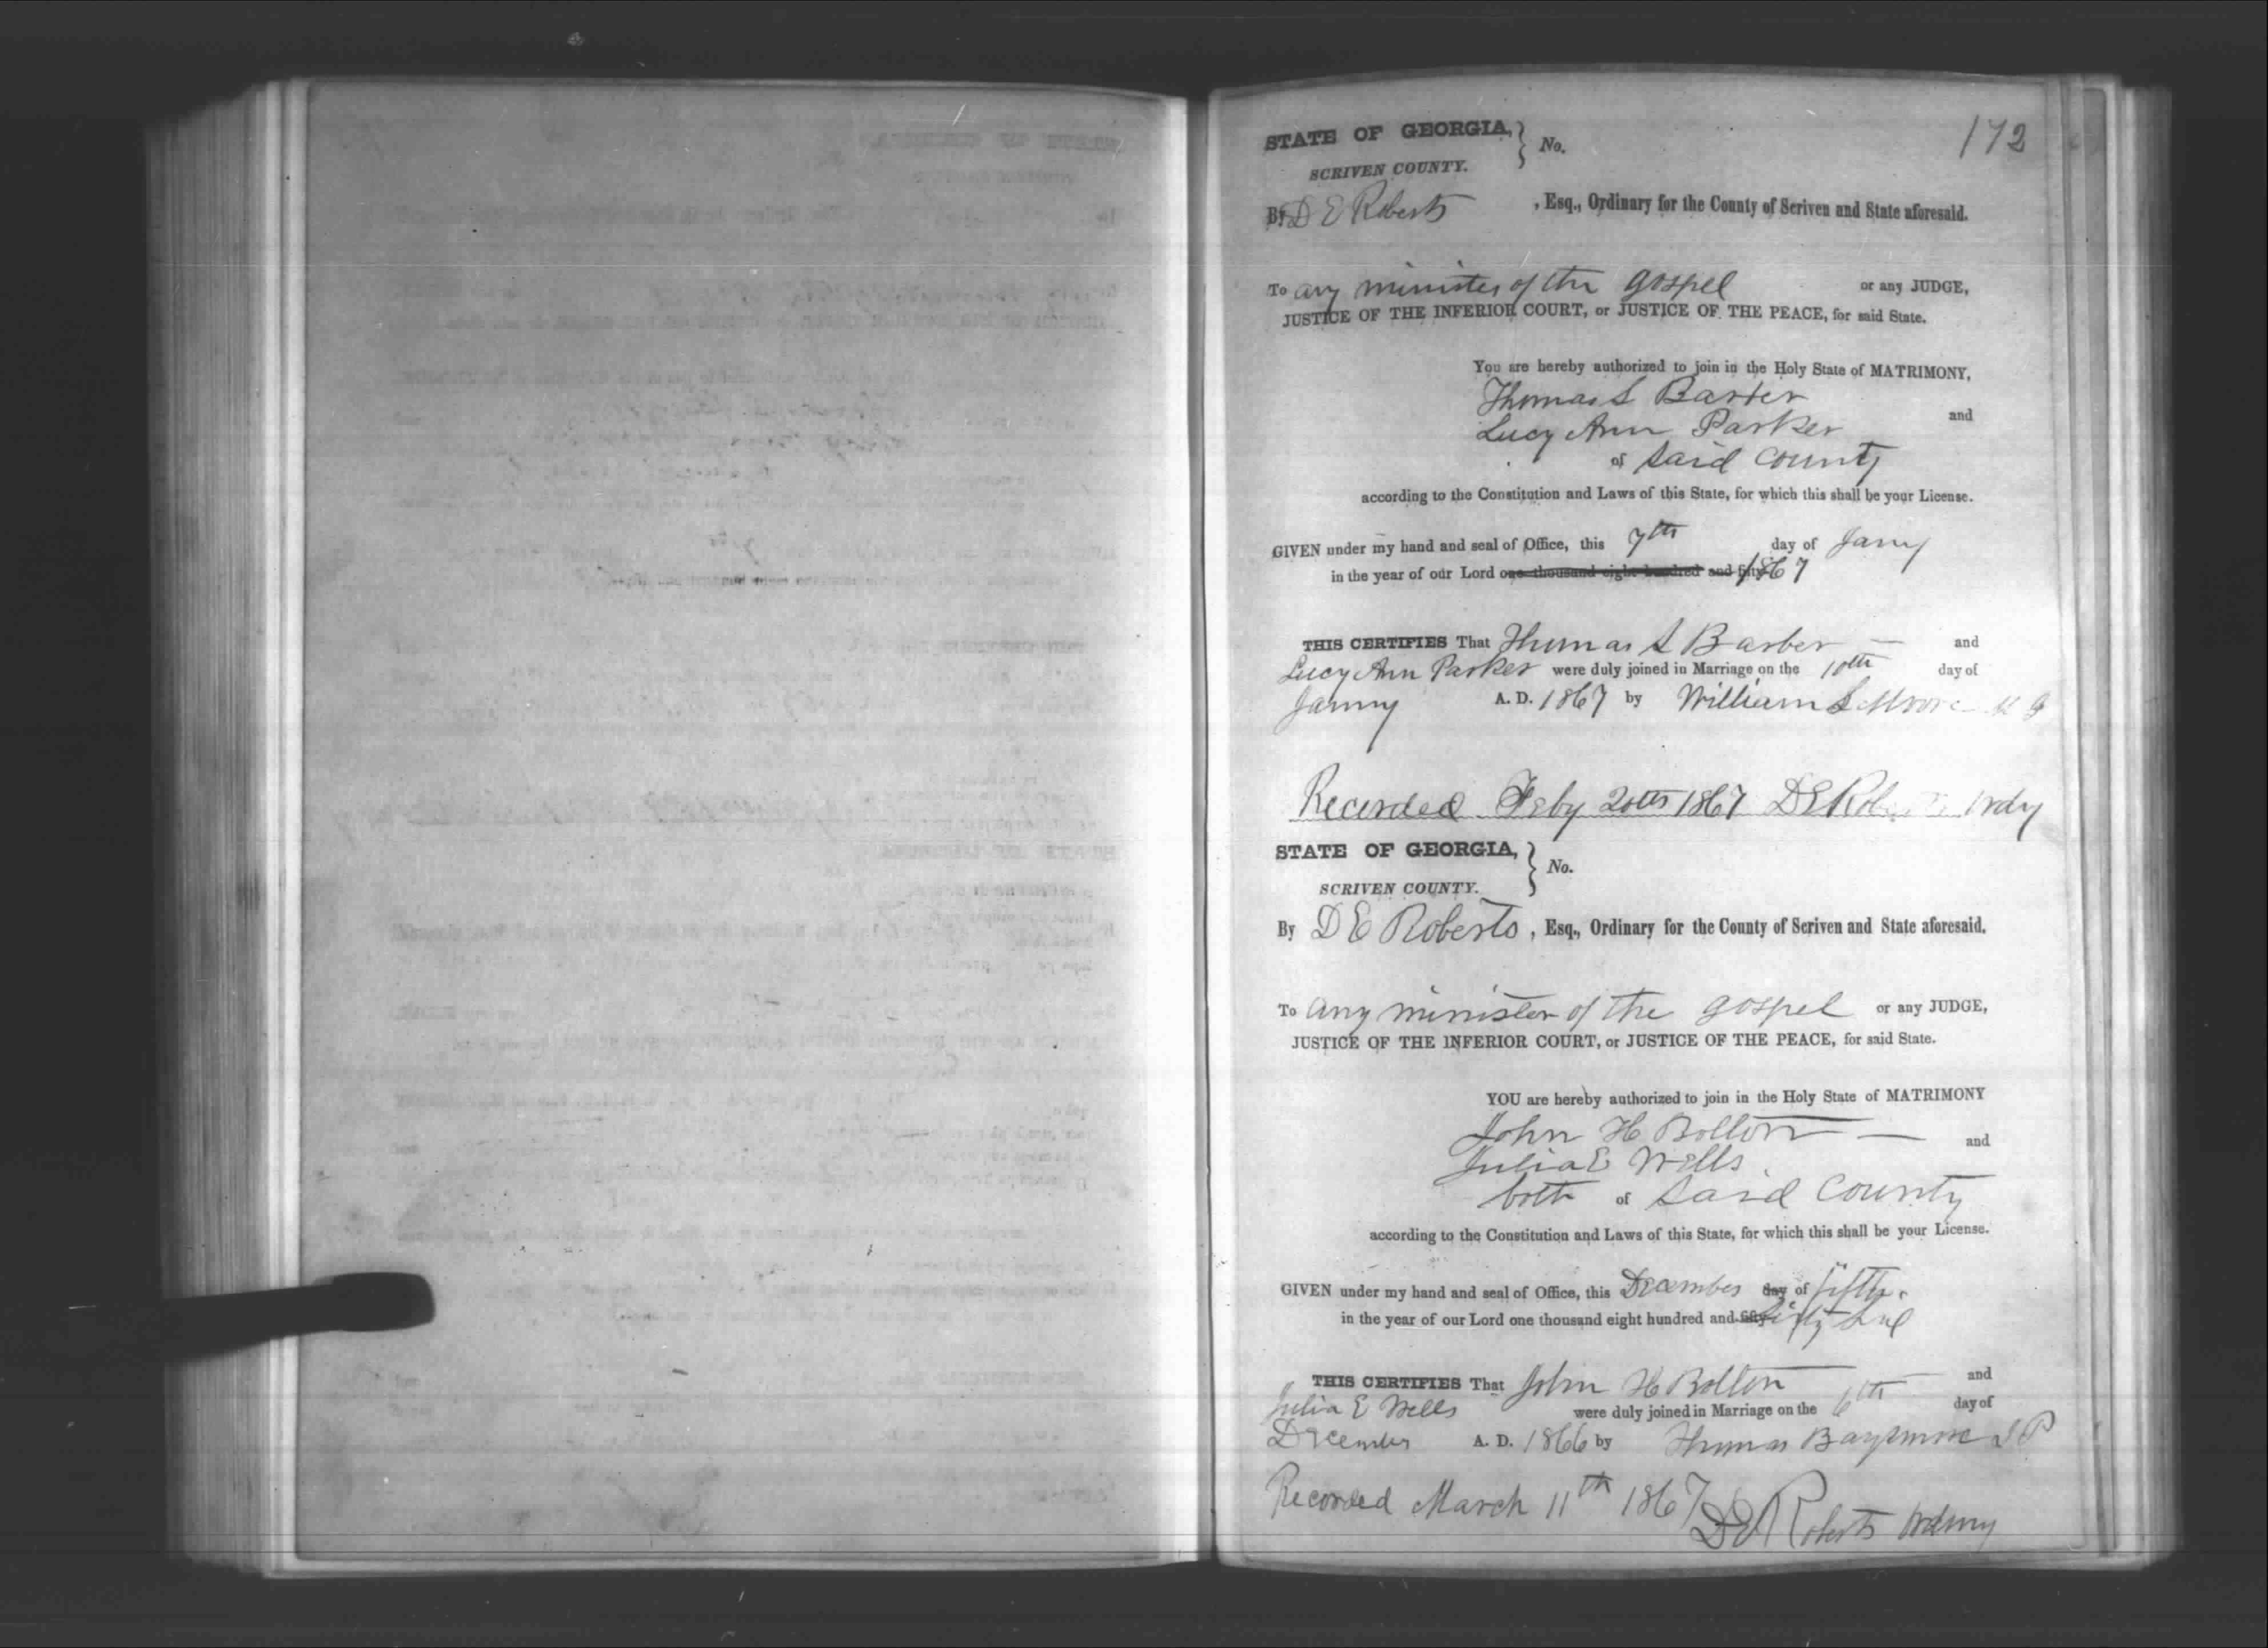 172
STATE OF GEORGIA, } No.
SCRIVEN COUNTY.
By D E Roberts , Esq., Ordinary for the County of Scriven and State aforesaid.
To any minister of the gospel or any JUDGE,
JUSTICE OF THE INFERIOR COURT, or JUSTICE OF THE PEACE, for said State.
You are hereby authorized to join in the Holy State of MATRIMONY,
Thomas S Barber
and
Lucy Ann Parker
of Said County
according to the Constitution and Laws of this State, for which this shall be your License.
GIVEN under my hand and seal of Office, this 7th day of Jany
in the year of our Lord one thousand eight hundred and fifty 1867
THIS CERTIFIES That Thomas S Barber — and
Lucy Ann Parker were duly joined in Marriage on the 10th day of
Janny A. D. 1867 by William S Moore M G
Recorded Feby 20th 1867 D E Roberts Ordy
STATE OF GEORGIA, } No.
SCRIVEN COUNTY.
By D E Roberts , Esq., Ordinary for the County of Scriven and State aforesaid.
To any minister of the gospel or any JUDGE,
JUSTICE OF THE INFERIOR COURT, or JUSTICE OF THE PEACE, for said State.
YOU are hereby authorized to join in the Holy State of MATRIMONY
John H Bolton — and
Julia E Wells
both of Said County
according to the Constitution and Laws of this State, for which this shall be your License.
GIVEN under my hand and seal of Office, this December day of fifth
in the year of our Lord one thousand eight hundred and fifty
THIS CERTIFIES That John H Bolton and
Julia E Wells were duly joined in Marriage on the 6th day of
December A. D. 1866 by Thomas Bazemore J P
Recorded March 11th 1867 D E Roberts Ordny